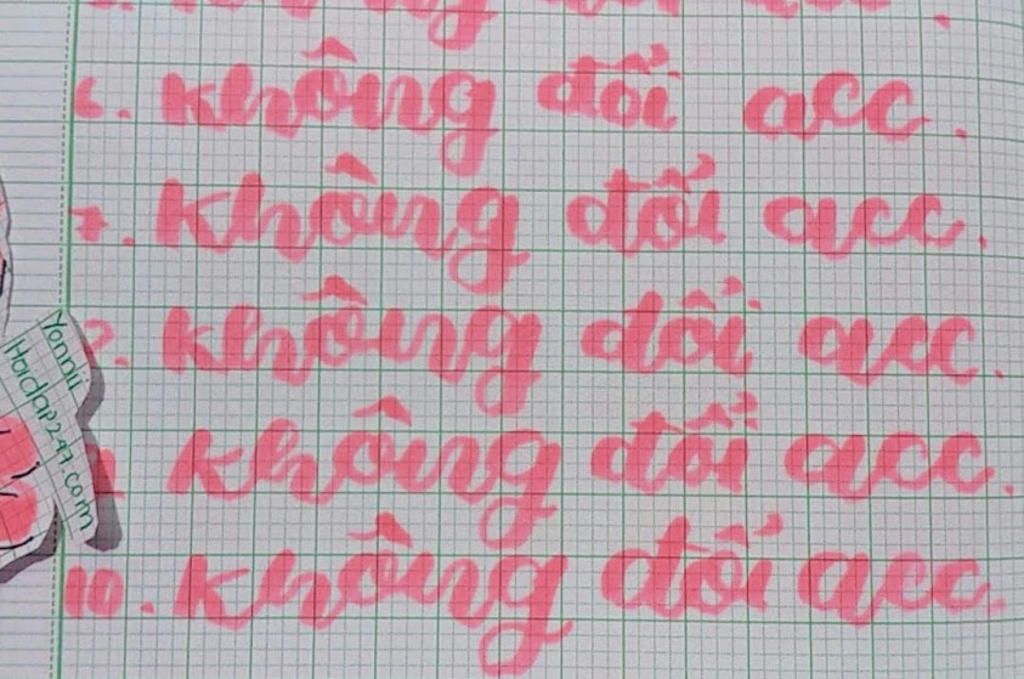 6. không đổi acc.
7. không đổi acc.
không đổi acc.
không đổi acc.
10. không đổi acc.
Yonnii
Hoidap247.com